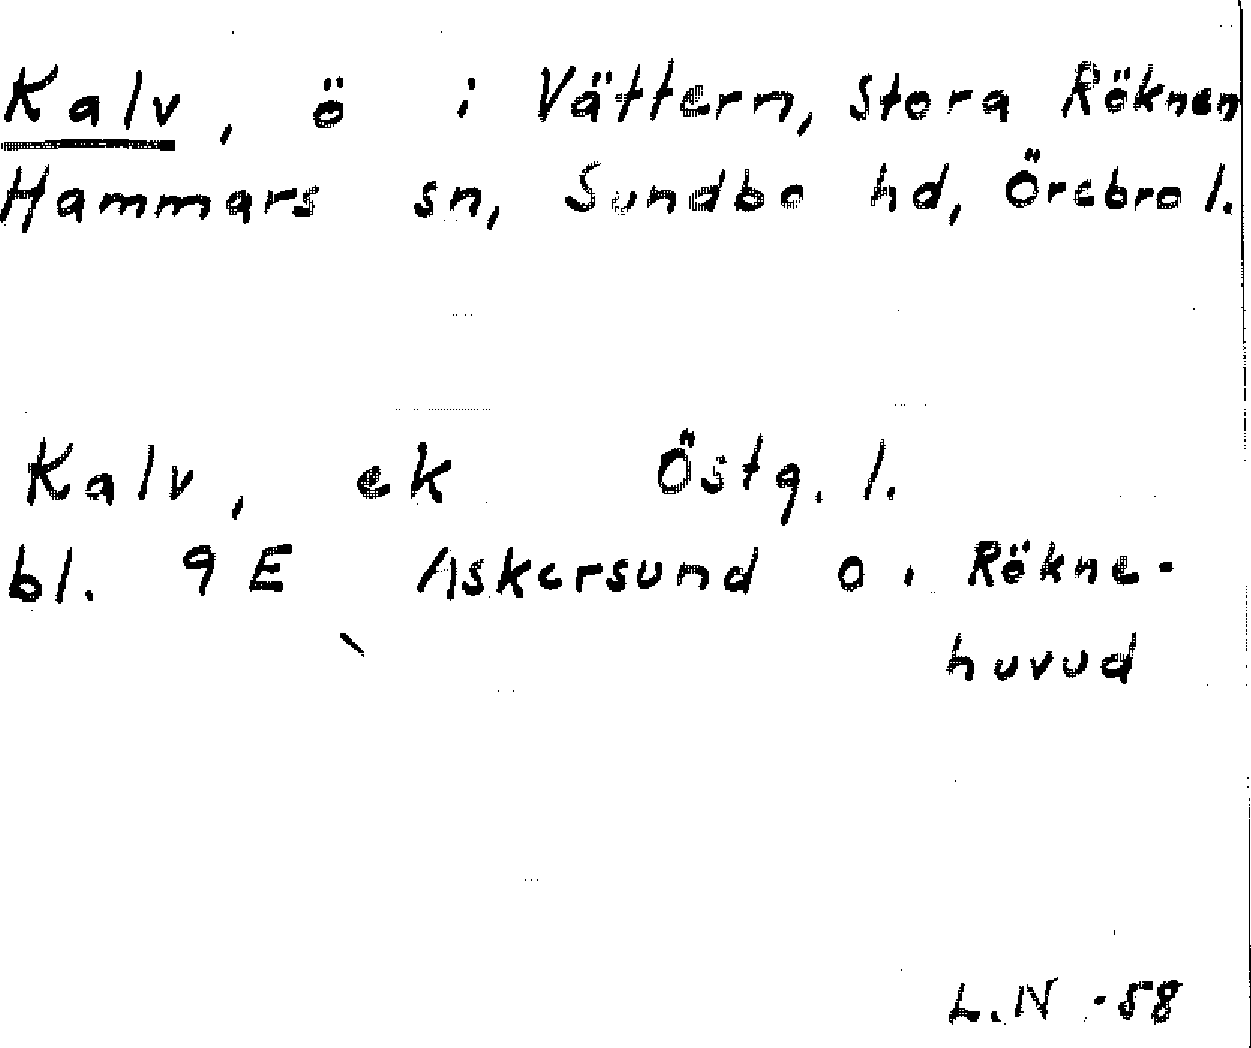 Kalv, ö i Vättern, Stora Röknen
Hammars sn, Sundbo hd, Örebro l.
Kalv, ek Östg. l.
bl. 9 E Askersund o. Rökne-
huvud
L.N -58